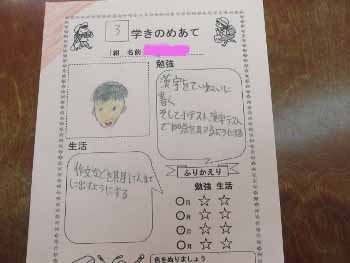 3 学きのめあて
組 名前
勉強
漢字をていねいに
書く
そして小テスト、漢字テスト
で100点をとるようにする
生活
作文などを期げん内まで
に出すようにする
ふりかえり
勉強 生活
○月 ☆ ☆
○月 ☆ ☆
○月 ☆ ☆
○月 ☆ ☆
色をぬりましょう